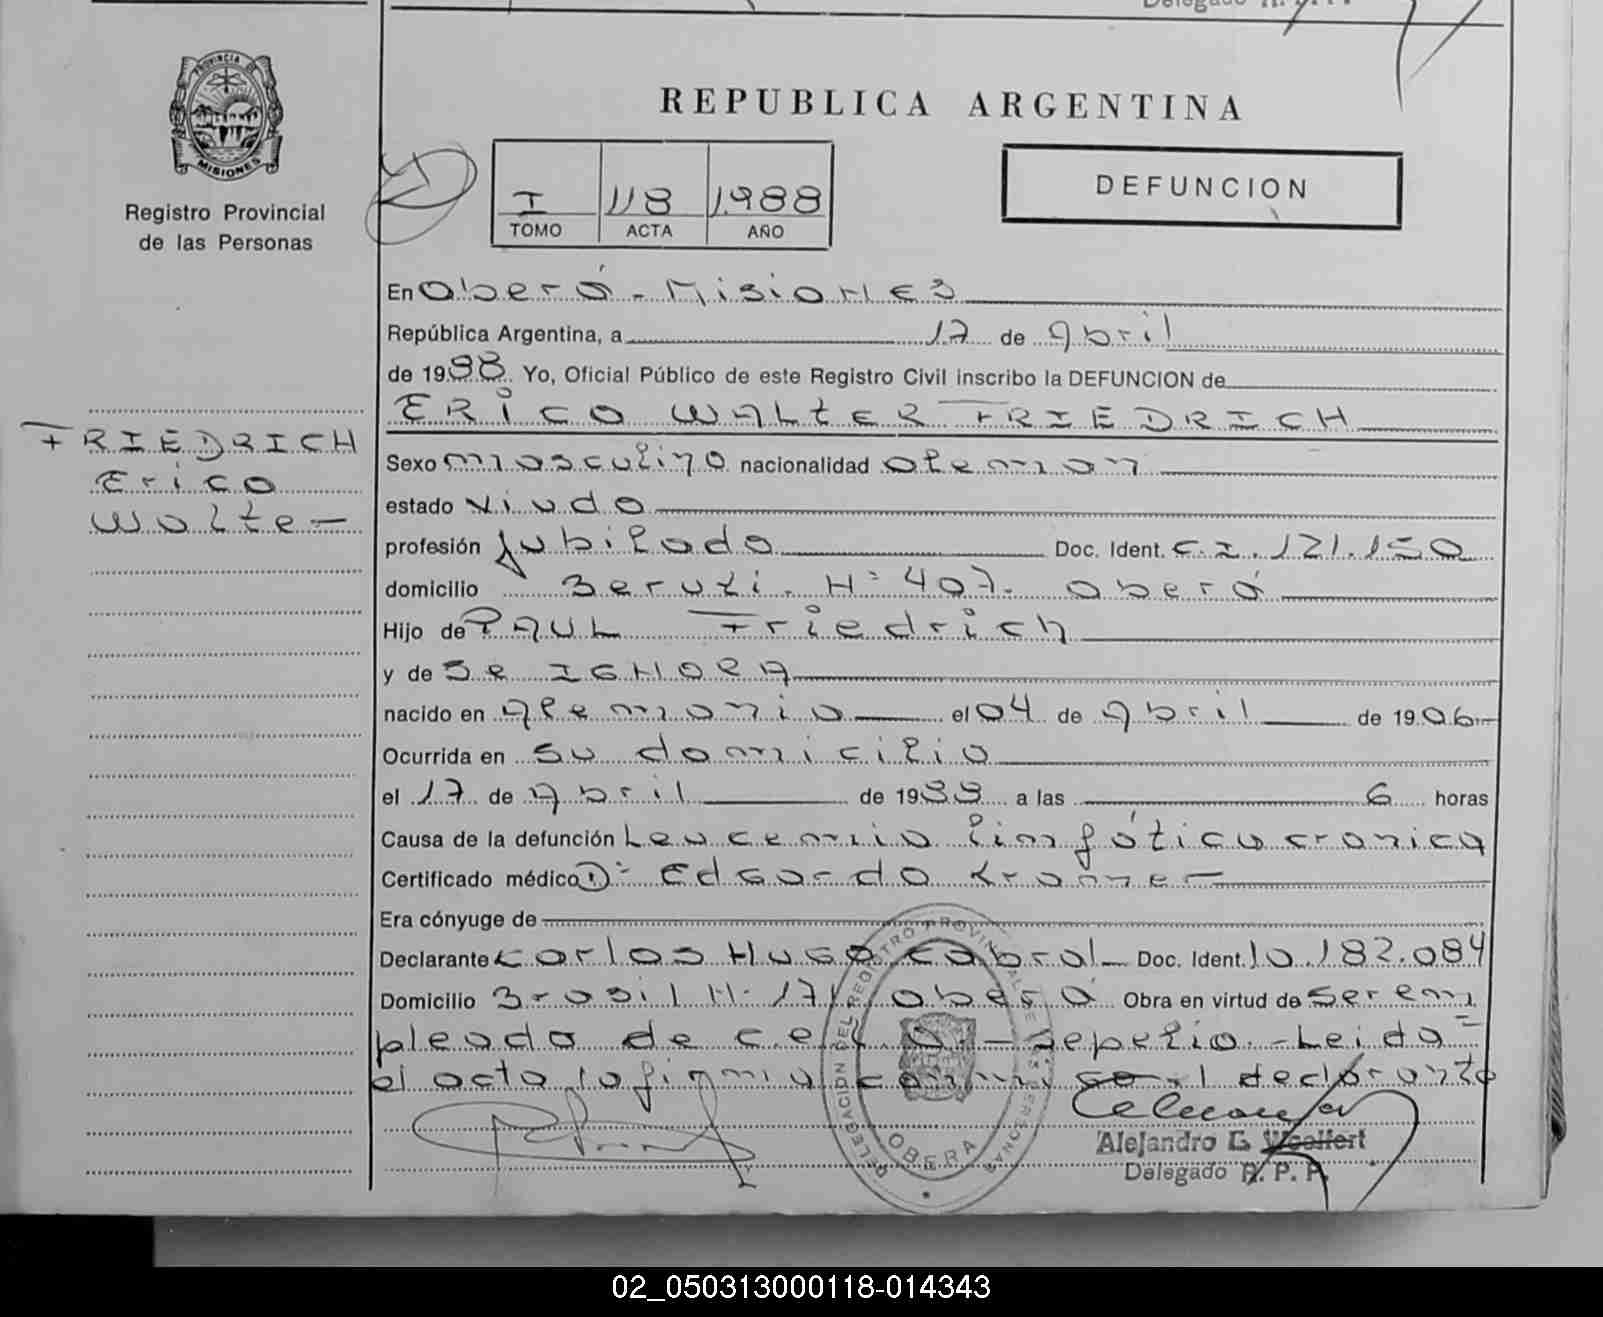 Delegado R. P. P.
PROVINCIA DE
MISIONES
Registro Provincial
de las Personas
REPUBLICA ARGENTINA
I 118 1988
TOMO ACTA AÑO
DEFUNCION
En Oberá - Misiones
República Argentina, a 17 de abril
de 1988 Yo, Oficial Público de este Registro Civil inscribo la DEFUNCION de
ERICO WALTER FRIEDRICH
FRIEDRICH
Erico
Walter
Sexo masculino nacionalidad aleman
estado viudo
profesión Jubilado Doc. Ident. C.I. 121.150
domicilio Beruti - Nº 407 - Oberá
Hijo de PAUL Friedrich
y de Se IGNORA
nacido en Alemania el 04 de abril de 1906
Ocurrida en su domicilio
el 17 de abril de 1988 a las 6 horas
Causa de la defunción Leucemia linfática cronica
Certificado médico D: Edgardo Kramer
Era cónyuge de
Declarante Carlos Hugo Cabral Doc. Ident. 10.182.084
Domicilio Brasil Nº 171 Oberá Obra en virtud de ser em
pleado de C.E.L.O. - Sepelio - Leida
el acta la firma conmi go el declarante
DELEGACION DEL REGISTRO PROVINCIAL DE LAS PERSONAS
OBERA
Alejandro E. Woelfert
Delegado R. P. P.
02_050313000118-014343